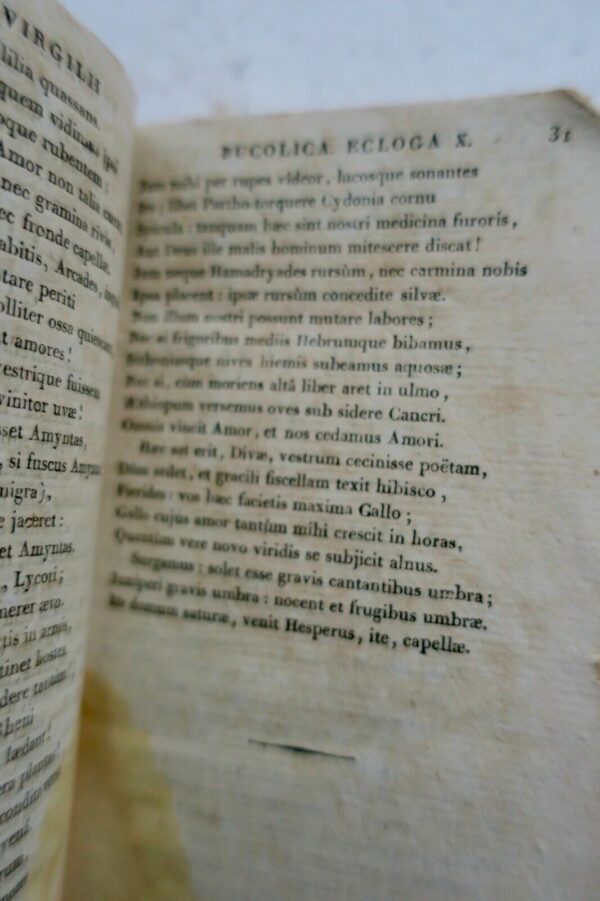 VIRGILII
lilia quassans.
quem vidimus ipsi
que rubentem:
Amor non talia curat
nec gramina rivis,
ec fronde capellæ.
abitis, Arcades,
tare periti
olliter ossa quiescant
t amores!
estrique fuissem
vinitor uvæ!
sset Amyntas,
, si fuscus Amyntas
nigra),
e jaceret:
et Amyntas.
, Lycori;
merer ævo.
tis in armis,
tinet hostes.
dere tantum
Rheni
lædant!
era plantas!
condita
rum,
BUCOLICA. ECLOGA X. 31
Jam mihi per rupes videor, lucosque sonantes
Ire; libet Partho torquere Cydonia cornu
Spicula: tanquam hæc sint nostri medicina furoris,
Aut Deus ille malis hominum mitescere discat!
Jam neque Hamadryades rursùm, nec carmina nobis
Ipsa placent: ipsæ rursùm concedite silvæ.
Non illum nostri possunt mutare labores;
Nec si frigoribus mediis Hebrumque bibamus,
Sithoniasque nives hiemis subeamus aquosæ;
Nec si, cùm moriens altâ liber aret in ulmo,
Æthiopum versemus oves sub sidere Cancri.
Omnia vincit Amor, et nos cedamus Amori.
Hæc sat erit, Divæ, vestrum cecinisse poëtam,
Dùm sedet, et gracili fiscellam texit hibisco,
Pierides: vos hæc facietis maxima Gallo;
Gallo cujus amor tantùm mihi crescit in horas,
Quantùm vere novo viridis se subjicit alnus.
Surgamus: solet esse gravis cantantibus umbra;
Juniperi gravis umbra: nocent et frugibus umbræ.
Ite domum saturæ, venit Hesperus, ite, capellæ.